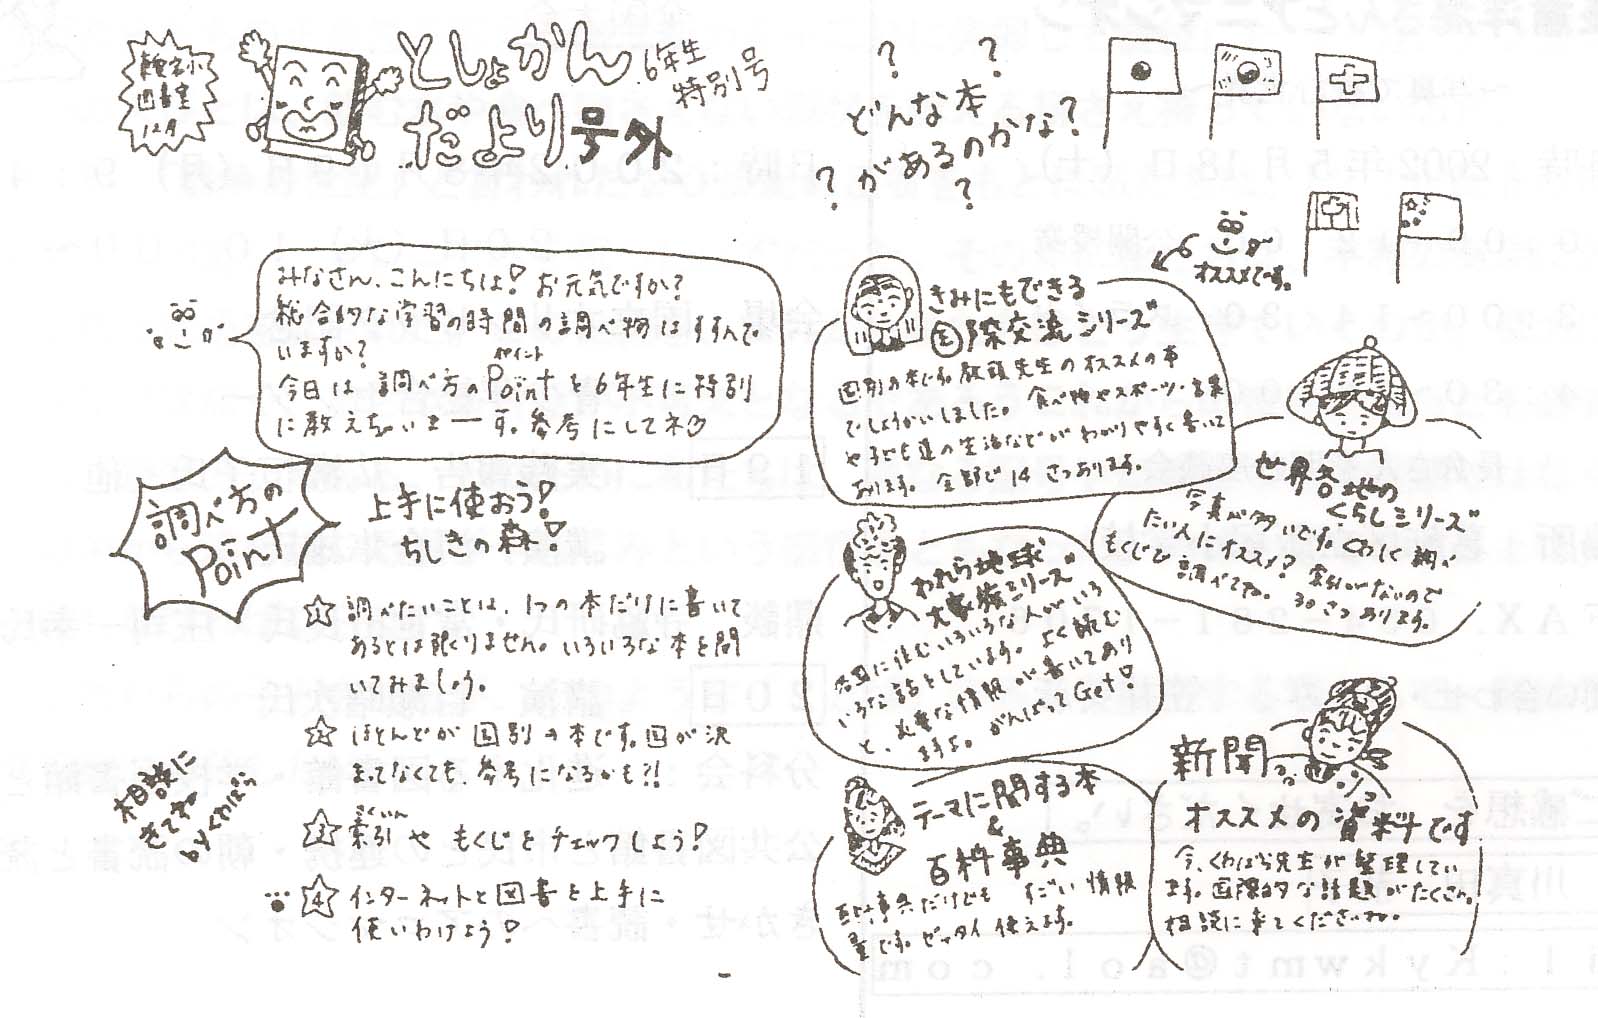 図書室
12月
としょかん
だより号外
6年生
特別号
みなさん、こんにちは! お元気ですか?
総合的な学習の時間の調べ物はすすんで
いますか?
ポイント
今日は調べ方のPointを6年生に特別
に教えちゃいまーす。参考にしてネ♡
調べ方の
Point
上手に使おう!
ちしきの森!
1 調べたいことは、1つの本だけに書いて
あるとは限りません。いろいろな本を開
いてみましょう。
2 ほとんどが国別の本です。国が決
まってなくても、参考になるかも?!
さくいん
3 索引やもくじをチェックしよう!
4 インターネットと図書を上手に
使いわけよう!
相談に
きてネ
by くわばら
? ?
どんな本
があるのかな?
? ?
オススメです。
きみにもできる
国際交流シリーズ
国別の本じゃ教頭先生のオススメの本
でしょうかいしました。食べ物やスポーツ・言葉
や子ども達の生活などがわかりやすく書いて
あります。全部で14さつあります。
世界各地の
くらしシリーズ
写真が多いです。くわしく調べ
たい人にオススメ? 索引がないので
もくじで調べてネ。30さつあります。
われら地球
大家族シリーズ
各国に住むいろいろな人がいろ
いろな話をしています。よく読む
と、必要な情報が書いてあり
ますよ。がんばってGet!
テーマに関する本
&
百科事典
百科事典だけども すごい情報
量です。ゼッタイ使えます。
新聞
オススメの資料です
今、くわばら先生が整理してい
ます。国際的な話題がたくさん。
相談に来てくださいネ。